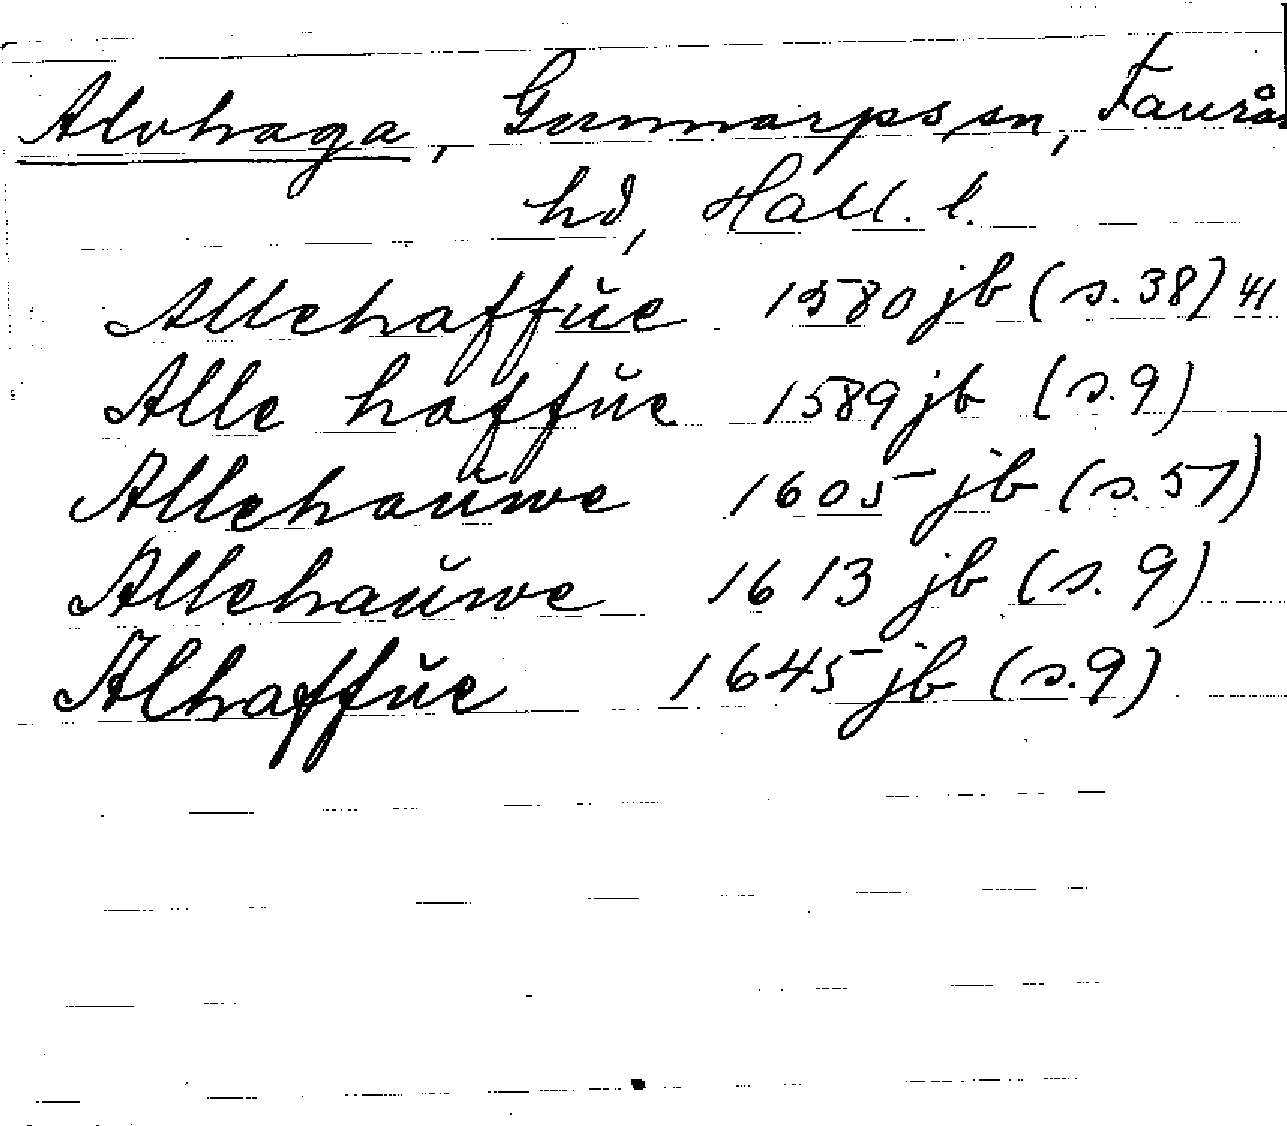 Alvhaga, Gunnarps sn, Faurås
hd, Hall. l.
Allehaffŭe 1580 jb (s. 38) 41
Alle haffŭe 1589 jb (s. 9)
Allehaŭwe 1605 jb (s. 57)
Allehaŭwe 1613 jb (s. 9)
Alhaffŭe 1645 jb (s. 9)